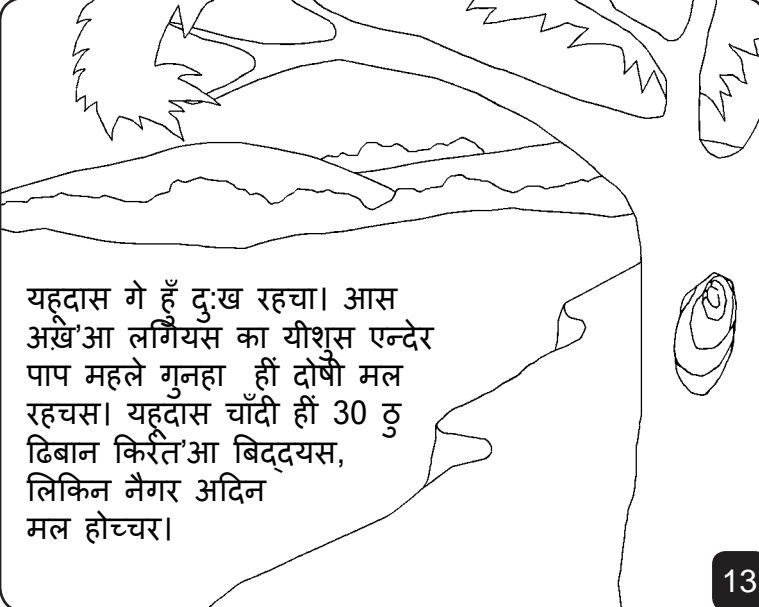 यहूदास गे हूँ दु:ख रहचा। आस
अख़'आ लगियस का यीशुस एन्देर
पाप महले गुनहा हीं दोषी मल
रहचस। यहूदास चाँदी हीं 30 ठु
ढिबान किर्रत'आ बिद्दयस,
लिकिन नैगर अदिन
मल होच्चर।
13